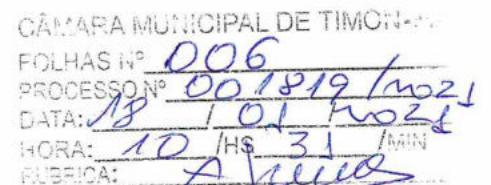 CÂMARA MUNICIPAL DE TIMON-
FOLHAS Nº 006
PROCESSO Nº 001819/2021
DATA: 18 / 01 / 2021
HORA: 10 /HS 31 /MIN
RUBRICA: